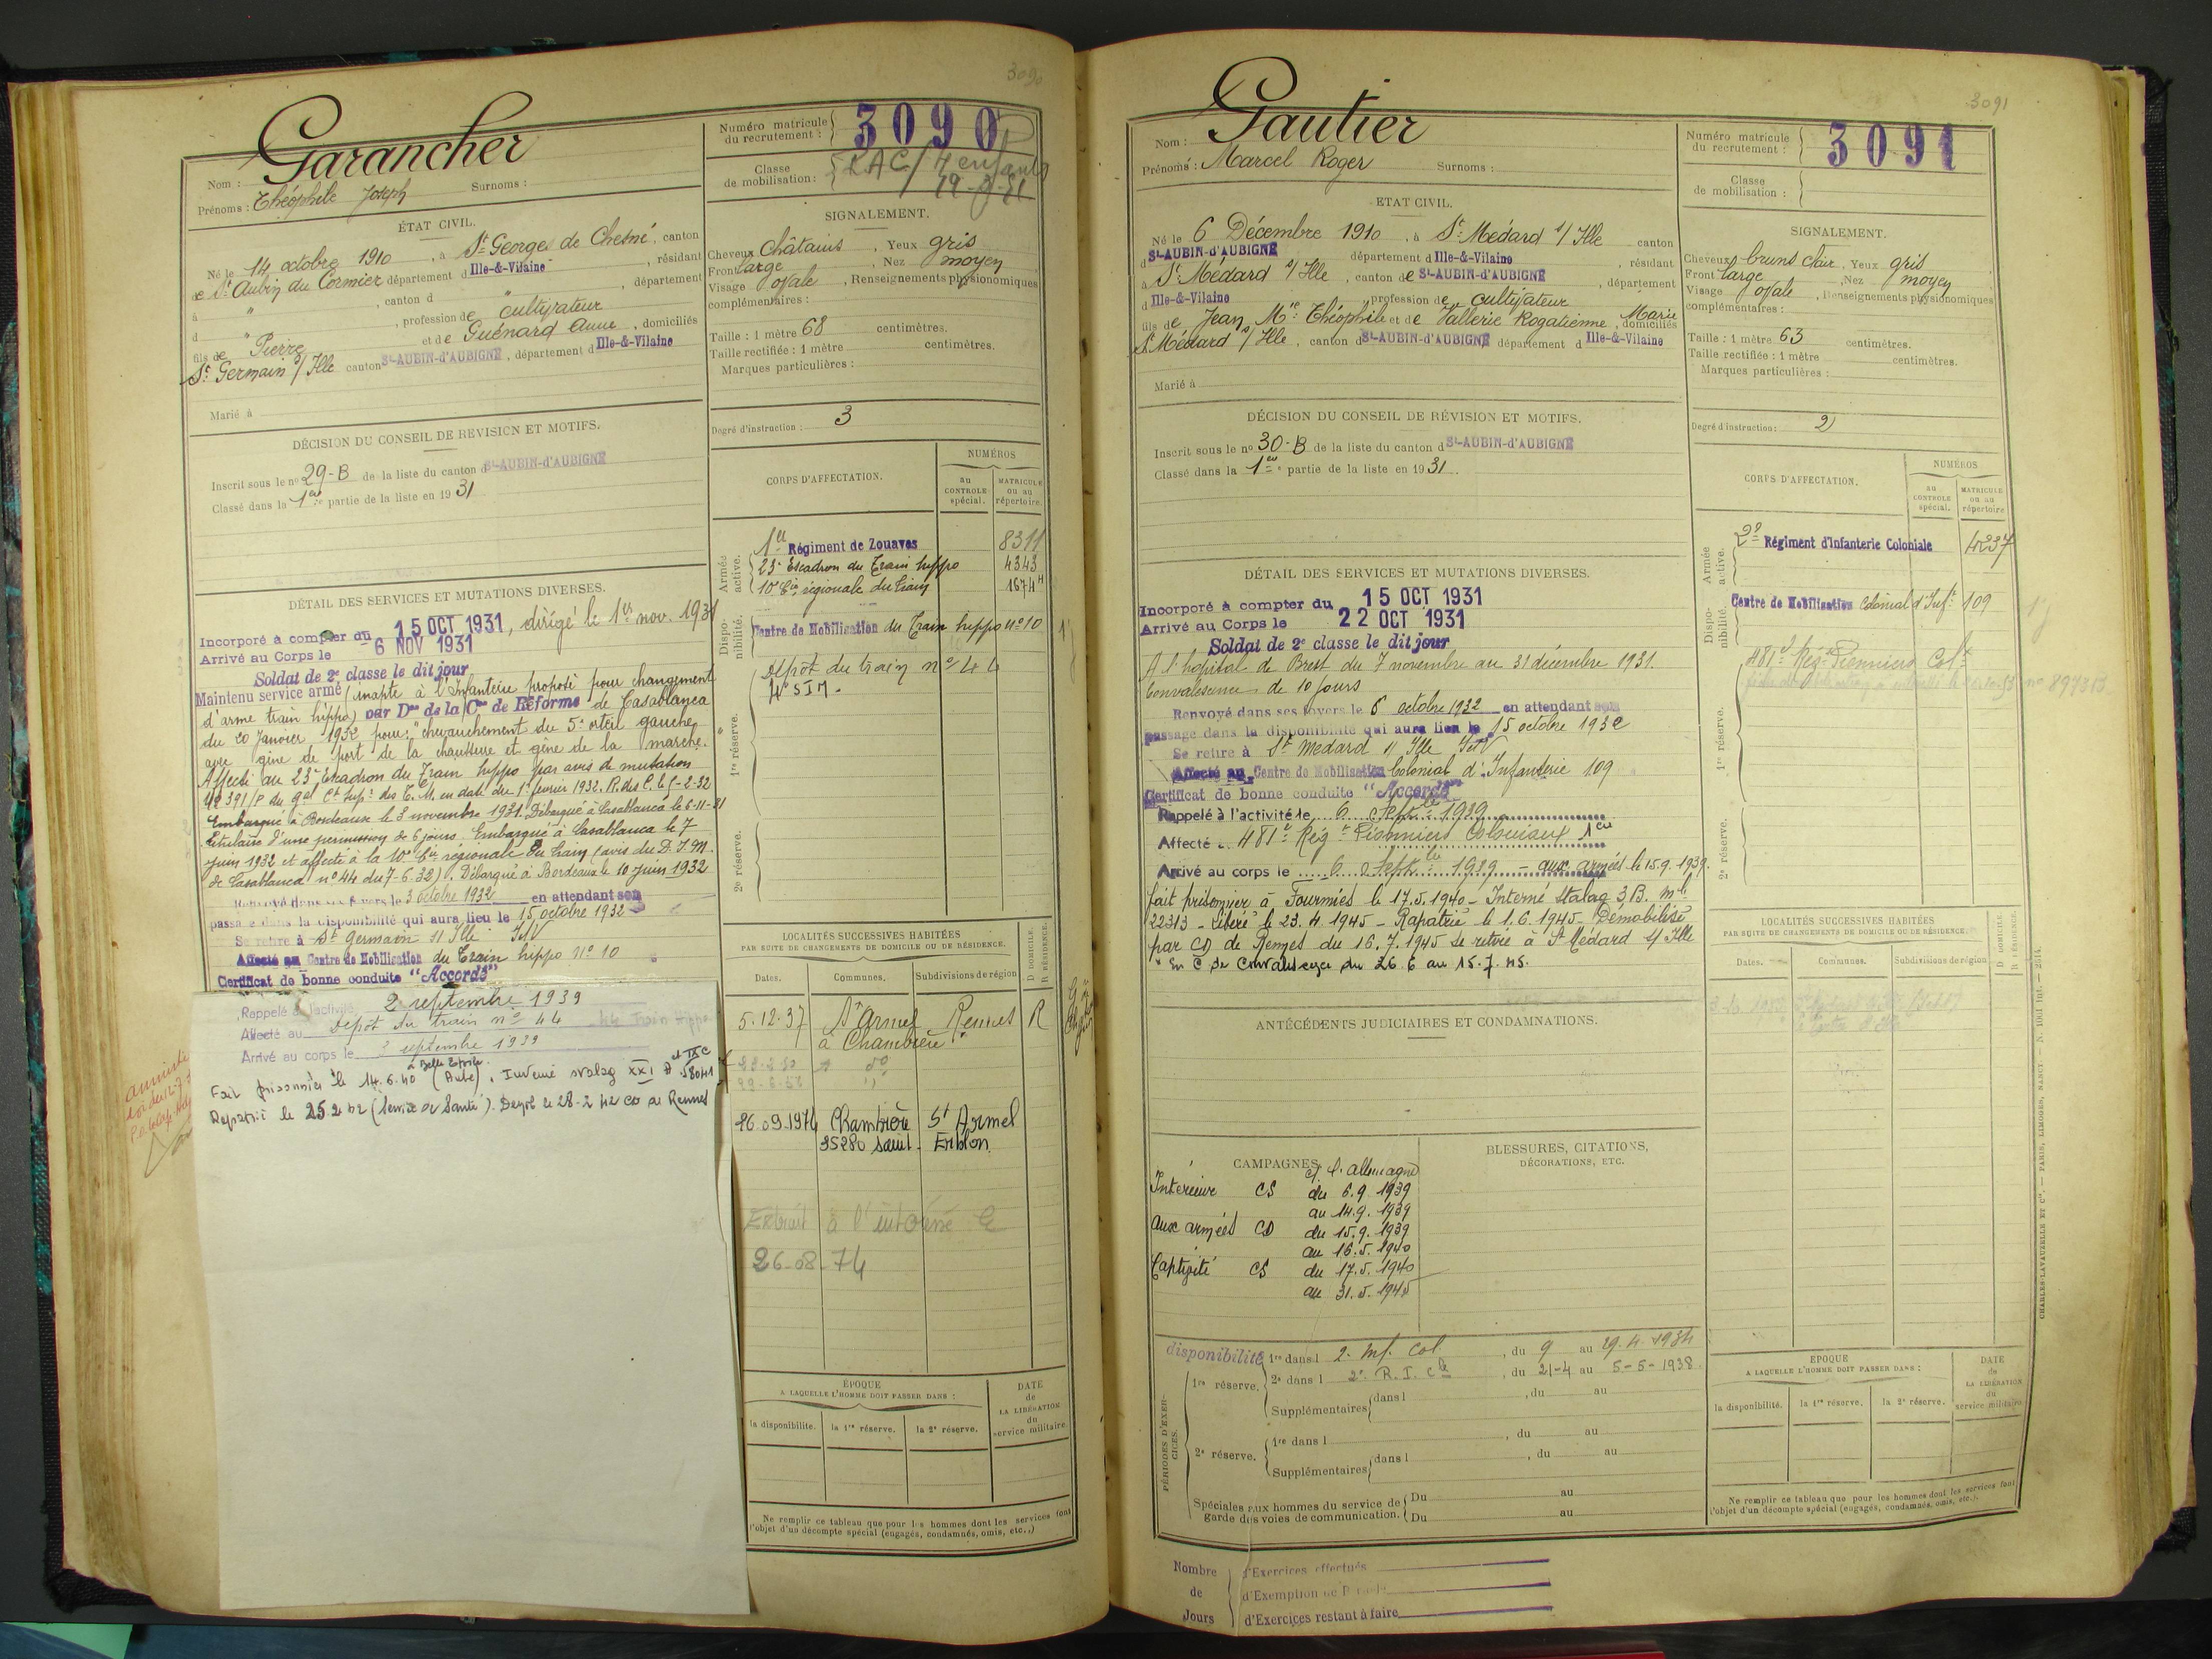 3090
Garancher
Nom :
Prénoms : Théophile Joseph Surnoms :
Numéro matricule du recrutement : 3090
Classe de mobilisation : RAC / 4 enfants
ÉTAT CIVIL.
Né le 14 octobre 1910, à St Georges de Chesné, canton
de St Aubin du Cormier département d Ille-&-Vilaine, résidant
à " , canton d " , département
d " , profession de cultivateur
fils de Pierre et de Guénard Anne, domiciliés
St Germain s/ Ille canton St-AUBIN-d'AUBIGNÉ, département d Ille-&-Vilaine
Marié à
SIGNALEMENT.
Cheveux Châtains, Yeux gris
Front large, Nez moyen
Visage ovale, Renseignements physionomiques
complémentaires :
Taille : 1 mètre 68 centimètres.
Taille rectifiée : 1 mètre centimètres.
Marques particulières :
Degré d'instruction : 3
DÉCISION DU CONSEIL DE RÉVISION ET MOTIFS.
Inscrit sous le no 29-B de la liste du canton d St-AUBIN-d'AUBIGNÉ
Classé dans la 1ère partie de la liste en 1931
CORPS D'AFFECTATION.
NUMÉROS
AU CONTROLE spécial.
MATRICULE ou au répertoire.
Armée active.
1er Régiment de Zouaves 8311
23e Escadron du Train hippo 4343
10e Cie régionale du train 1674H
Disponibilité.
Centre de Mobilisation du Train hippo no 10
1re réserve.
Dépôt du train no 44
2e réserve.
DÉTAIL DES SERVICES ET MUTATIONS DIVERSES.
Incorporé à compter du 15 OCT 1931, dirigé le 1er nov. 1931
Arrivé au Corps le 6 NOV 1931
Soldat de 2e classe le dit jour
Maintenu service armé (inapte à l'Infanterie proposé pour changement
d'arme train hippo) par Don de la Con de Réforme de Casablanca
du 20 Janvier 1932 pour : "chevauchement du 5e orteil gauche
avec gêne de port de la chaussure et gêne de la marche.
Affecté au 23e Escadron du Train hippo par avis de mutation
no 391/P du gal Ct Supr des T. M. en date du 1er février 1932. R. des C. le 5-2-32
Embarqué à Bordeaux le 3 novembre 1931. Débarqué à Casablanca le 6-11-31
Titulaire d'une permission de 6 jours. Embarqué à Casablanca le 7
juin 1932 et affecté à la 10e Cie régionale du train (avis du D. I. M.
de Casablanca no 44 du 7-6-32). Débarqué à Bordeaux le 10 juin 1932
Renvoyé dans ses foyers le 3 octobre 1932 en attendant son
passage dans la disponibilité qui aura lieu le 15 octobre 1932
Se retire à St Germain s/ Ille I&V
Affecté au Centre de Mobilisation du Train hippo no 10
Certificat de bonne conduite "Accordé"
Rappelé à l'activité 2 septembre 1939
Affecté au Dépôt du train no 44
Arrivé au corps le 2 septembre 1939
Fait prisonnier le 14.6.40 à Belle Etoile (Aube). Interné stalag XXI et IXC
Rapatrié le 25 2 42 (Service de Santé). 28-2 42 CD de Rennes
LOCALITÉS SUCCESSIVES HABITÉES
PAR SUITE DE CHANGEMENTS DE DOMICILE OU DE RÉSIDENCE.
Dates. Communes. Subdivisions de région D DOMICILE. R RÉSIDENCE.
5.12.37 St Armel Rennes R
à Chambière
26.09.1974 Chambière St Armel
35280 Saint-Erblon
Extrait à l'intéressé le
26-08-74
ÉPOQUE
A LAQUELLE L'HOMME DOIT PASSER DANS :
la disponibilité. la 1re réserve. la 2e réserve.
DATE de LA LIBÉRATION du service militaire
Ne remplir ce tableau que pour les hommes dont les services font
l'objet d'un décompte spécial (engagés, condamnés, omis, etc..)
3091
Gautier
Nom :
Prénoms : Marcel Roger Surnoms :
Numéro matricule du recrutement : 3091
Classe de mobilisation :
ETAT CIVIL.
Né le 6 Décembre 1910, à St Médard s/ Ille canton
d St-AUBIN-d'AUBIGNÉ département d Ille-&-Vilaine, résidant
à St Médard s/ Ille, canton de St-AUBIN-d'AUBIGNÉ, département
d Ille-&-Vilaine, profession de cultivateur
fils de Jean Mie Théophile et de Vallerie Rogatienne Marie, domiciliés
St Médard s/ Ille, canton d St-AUBIN-d'AUBIGNÉ département d Ille-&-Vilaine
Marié à
SIGNALEMENT.
Cheveux bruns clair, Yeux gris
Front large, Nez moyen
Visage ovale, Renseignements physionomiques
complémentaires :
Taille : 1 mètre 63 centimètres.
Taille rectifiée : 1 mètre centimètres.
Marques particulières :
Degré d'instruction : 2
DÉCISION DU CONSEIL DE RÉVISION ET MOTIFS.
Inscrit sous le no 30-B de la liste du canton d St-AUBIN-d'AUBIGNÉ
Classé dans la 1ère partie de la liste en 1931.
CORPS D'AFFECTATION.
NUMÉROS
AU CONTROLE spécial.
MATRICULE ou au répertoire
Armée active.
2e Régiment d'Infanterie Coloniale 4237
Disponibilité.
Centre de Mobilisation Colonial d'Inf. 109
481e Régt Pionniers Colx
1re réserve.
2e réserve.
DÉTAIL DES SERVICES ET MUTATIONS DIVERSES.
Incorporé à compter du 15 OCT 1931
Arrivé au Corps le 22 OCT 1931
Soldat de 2e classe le dit jour
A l'hopital de Brest du 7 novembre au 31 décembre 1931.
Convalescence de 10 jours
Renvoyé dans ses foyers le 6 octobre 1932 en attendant son
passage dans la disponibilité qui aura lieu le 15 octobre 1932
Se retire à St Médard s/ Ille I&V
Affecté au Centre de Mobilisation Colonial d'Infanterie 109
Certificat de bonne conduite "Accordé"
Rappelé à l'activité le 6 Septbre 1939
Affecté 481e Régt Pionniers Coloniaux
Arrivé au corps le 6 Septbre 1939 - aux armées le 15.9.1939.
fait prisonnier à Fourmies le 17.5.1940 - Interné Stalag 3B. mle
22313 - Libéré le 23.4.1945 - Rapatrié le 1.6.1945. Démobilisé
par CD de Rennes du 16.7.1945 se retire à St Médard s/ Ille
En C de Convalescence du 26.6 au 15.7.45.
ANTÉCÉDENTS JUDICIAIRES ET CONDAMNATIONS.
CAMPAGNES c/ l'Allemagne
Intérieur CS du 6.9.1939
au 14.9.1939
aux armées CD du 15.9.1939
au 16.5.1940
Captivité CS du 17.5.1940
au 31.5.1945
BLESSURES, CITATIONS,
DÉCORATIONS, ETC.
LOCALITÉS SUCCESSIVES HABITÉES
PAR SUITE DE CHANGEMENTS DE DOMICILE OU DE RÉSIDENCE.
Dates. Communes. Subdivisions de région D DOMICILE. R RÉSIDENCE.
PÉRIODES D'EXERCICES.
disponibilité
1re réserve.
1re dans l 2. Inf. Col., du 9 au 29.4.1934
2e dans l 2e R. I. Cle, du 21-4 au 5-5-1938
Supplémentaires dans l , du au
2e réserve.
1re dans l , du au
Supplémentaires dans l , du au
Spéciales aux hommes du service de garde des voies de communication. Du au
Du au
ÉPOQUE
A LAQUELLE L'HOMME DOIT PASSER DANS :
la disponibilité. la 1re réserve. la 2e réserve.
DATE de LA LIBÉRATION du service militaire
Ne remplir ce tableau que pour les hommes dont les services font
l'objet d'un décompte spécial (engagés, condamnés, omis, etc..).
Nombre de Jours
d'Exercices effectués
d'Exemption de Période
d'Exercices restant à faire
CHARLES-LAVAUZELLE ET Cie. — PARIS, LIMOGES, NANCY